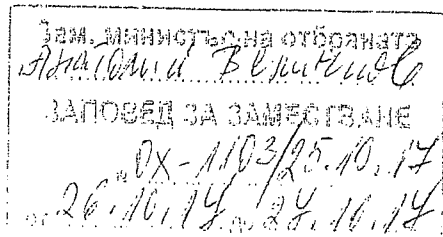 Зам. министър на отбраната
Анатолий Величков
ЗАПОВЕД ЗА ЗАМЕСТВАНЕ
№ ОХ-1103/25.10.17
от 26.10.17 до 27.10.17